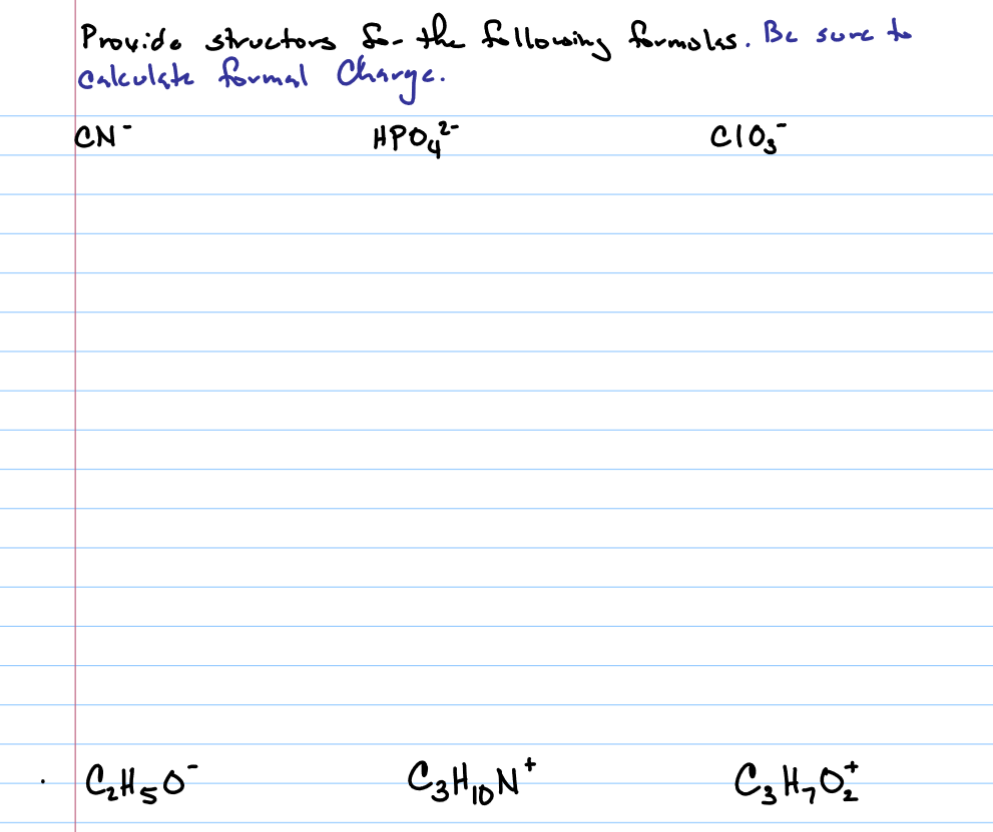 Provide structors for the following formulas. Be sure to
calculate formal Charge.
CN⁻ HPO₄²⁻ ClO₃⁻
C₂H₅O⁻ C₃H₁₀N⁺ C₃H₇O₂⁺